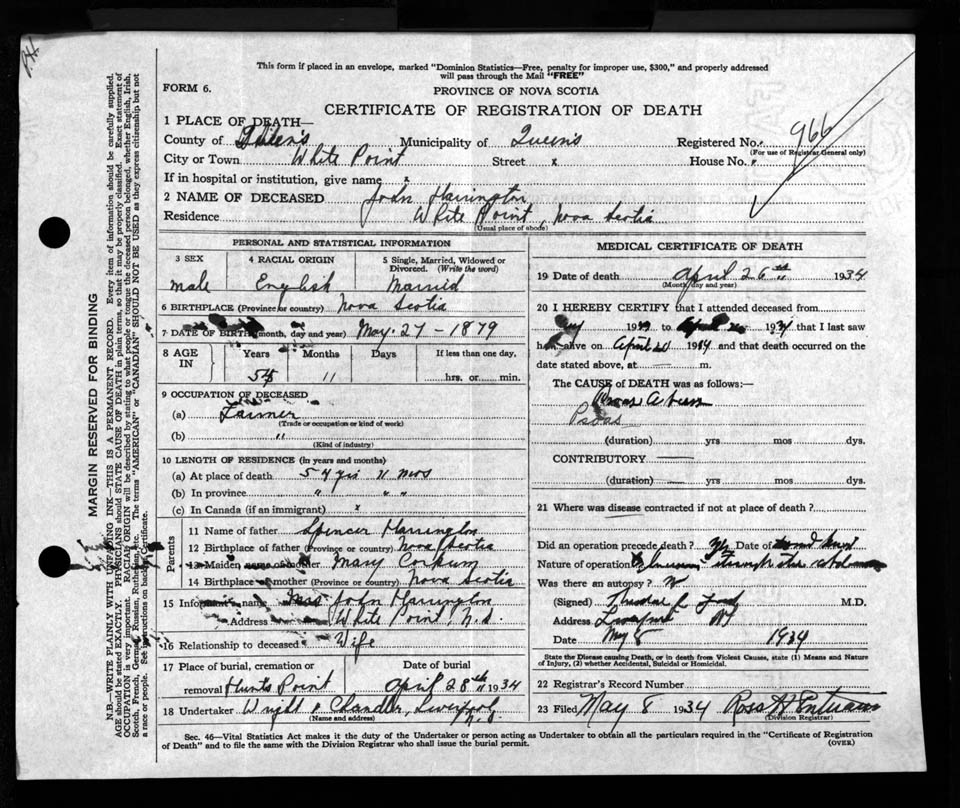 This form if placed in an envelope, marked "Dominion Statistics—Free, penalty for improper use, $300," and properly addressed
will pass through the Mail "FREE"
FORM 6.
PROVINCE OF NOVA SCOTIA
CERTIFICATE OF REGISTRATION OF DEATH
1 PLACE OF DEATH—
County of Queen's Municipality of Queens Registered No. 966
(For use of Registrar General only)
City or Town White Point Street x House No.
If in hospital or institution, give name x
2 NAME OF DECEASED John Harrington
Residence White Point, Nova Scotia
(Usual place of abode)
PERSONAL AND STATISTICAL INFORMATION
3 SEX 4 RACIAL ORIGIN 5 Single, Married, Widowed or
Divorced. (Write the word)
male English Married
6 BIRTHPLACE (Province or country) Nova Scotia
7 DATE OF BIRTH (month, day and year) May. 27 - 1879
8 AGE IN Years Months Days If less than one day,
54 11 hrs. or min.
9 OCCUPATION OF DECEASED
(a) Farmer
(Trade or occupation or kind of work)
(b) "
(Kind of industry)
10 LENGTH OF RESIDENCE (In years and months)
(a) At place of death 54 yrs 11 mos
(b) In province " " "
(c) In Canada (if an immigrant) x
Parents
11 Name of father Spencer Harrington
12 Birthplace of father (Province or country) Nova Scotia
13 Maiden name of mother Mary Corkum
14 Birthplace of mother (Province or country) Nova Scotia
15 Informant's name Mrs John Harrington
Address White Point, N.S.
16 Relationship to deceased Wife
17 Place of burial, cremation or Date of burial
removal Hunts Point April 28th 1934
18 Undertaker Wright & Chandler, Liverpool,
N.S.
(Name and address)
MEDICAL CERTIFICATE OF DEATH
19 Date of death April 26th 1934
(Month, day and year)
20 I HEREBY CERTIFY that I attended deceased from
19 to April 1934 that I last saw
h alive on April 1934 and that death occurred on the
date stated above, at — m.
The CAUSE of DEATH was as follows:—
Psoas Abscess
Psoas
(duration) yrs mos dys.
CONTRIBUTORY —
(duration) — yrs mos dys.
21 Where was disease contracted if not at place of death?
Did an operation precede death? Date of
Nature of operation
Was there an autopsy?
(Signed) M.D.
Address
Date May 8 1934
State the Disease causing Death, or in death from Violent Causes, state (1) Means and Nature
of Injury, (2) whether Accidental, Suicidal or Homicidal.
22 Registrar's Record Number
23 Filed May 8 1934 Ross
(Division Registrar)
Sec. 46—Vital Statistics Act makes it the duty of the Undertaker or person acting as Undertaker to obtain all the particulars required in the "Certificate of Registration
of Death" and to file the same with the Division Registrar who shall issue the burial permit.
(OVER)
MARGIN RESERVED FOR BINDING
N.B.—WRITE PLAINLY WITH UNFADING INK—THIS IS A PERMANENT RECORD. Every item of information should be carefully supplied.
AGE should be stated EXACTLY. PHYSICIANS should STATE CAUSE OF DEATH in plain terms, so that it may be properly classified. Exact statement of
OCCUPATION is very important. RACIAL ORIGIN will be described by stating to what people or tongue the deceased person belonged, whether English, Irish,
Scotch, French, German, Russian, Ruthenian, etc. The terms "AMERICAN" or "CANADIAN" SHOULD NOT BE USED as they express citizenship but not
a race or people. See instructions on back of Certificate.